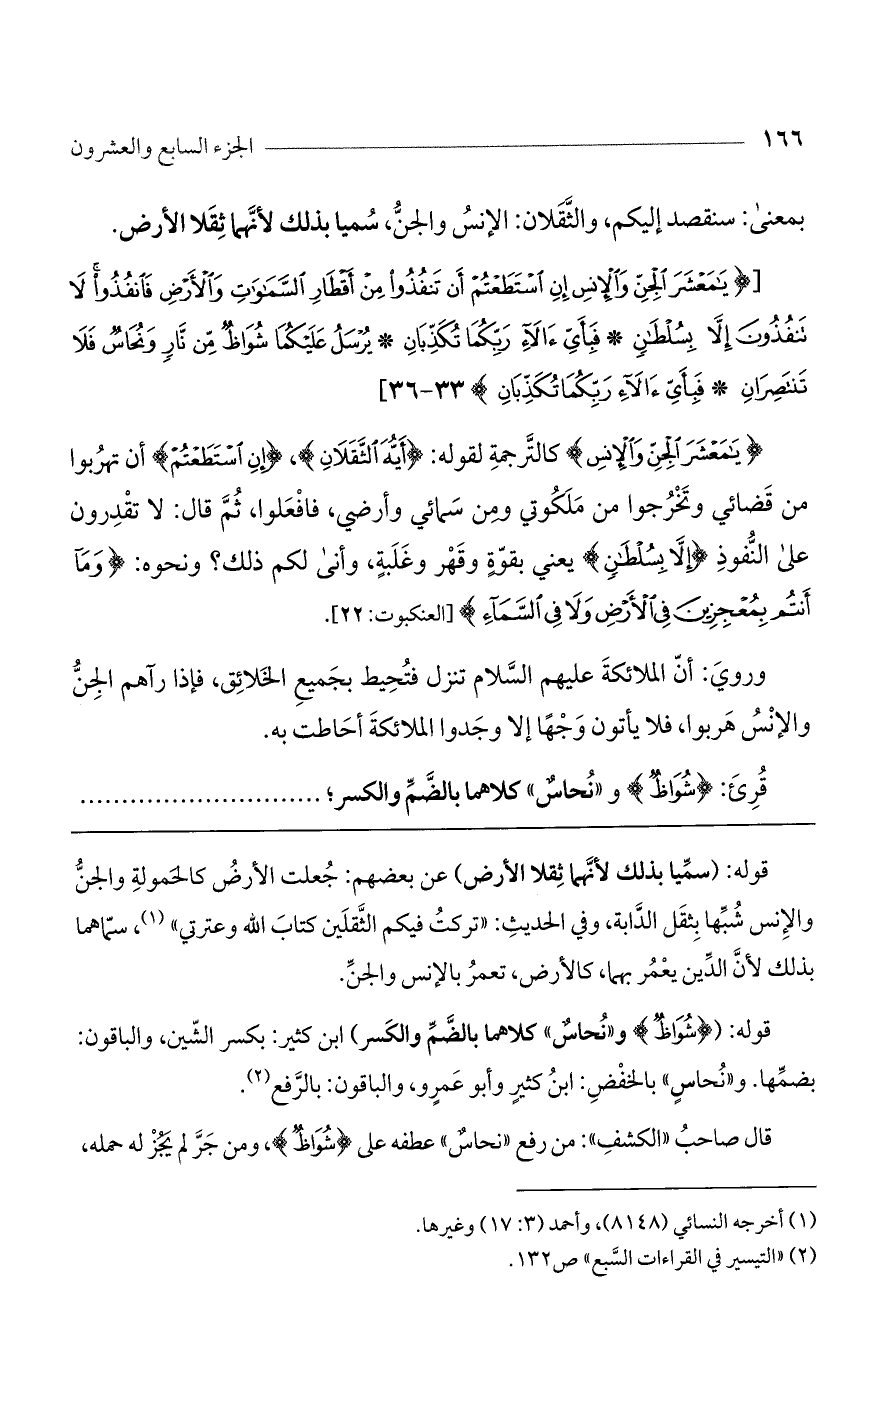 ١٦٦ الجزء السابع والعشرون
بمعنىٰ: سنقصد إليكم، والثَّقَلان: الإنسُ والجنُّ، سُميا بذلك لأنَّهما ثِقَلا الأرض.
[﴿يَٰمَعْشَرَ ٱلْجِنِّ وَٱلْإِنسِ إِنِ ٱسْتَطَعْتُمْ أَن تَنفُذُوا۟ مِنْ أَقْطَارِ ٱلسَّمَٰوَٰتِ وَٱلْأَرْضِ فَٱنفُذُوا۟ۚ لَا
تَنفُذُونَ إِلَّا بِسُلْطَٰنٍ * فَبِأَىِّ ءَالَآءِ رَبِّكُمَا تُكَذِّبَانِ * يُرْسَلُ عَلَيْكُمَا شُوَاظٌ مِّن نَّارٍ وَنُحَاسٌ فَلَا
تَنتَصِرَانِ * فَبِأَىِّ ءَالَآءِ رَبِّكُمَا تُكَذِّبَانِ﴾ ٣٣-٣٦]
﴿يَٰمَعْشَرَ ٱلْجِنِّ وَٱلْإِنسِ﴾ كالتَّرجمةِ لقوله: ﴿أَيُّهَ ٱلثَّقَلَانِ﴾، ﴿إِنِ ٱسْتَطَعْتُمْ﴾ أن تهرُبوا
من قَضائي وتَخْرُجوا من مَلَكُوتي ومِن سَمائي وأرضي، فافْعَلوا، ثُمَّ قال: لا تقْدِرون
علىٰ النُّفوذِ ﴿إِلَّا بِسُلْطَٰنٍ﴾ يعني بقوّةٍ وقَهْر وغَلَبةٍ، وأنىٰ لكم ذلك؟ ونحوه: ﴿وَمَآ
أَنتُم بِمُعْجِزِينَ فِى ٱلْأَرْضِ وَلَا فِى ٱلسَّمَآءِ﴾ [العنكبوت: ٢٢].
ورويَ: أنّ الملائكةَ عليهم السَّلام تنزل فتُحِيط بجَميعِ الخَلائِق، فإذا رآهم الجِنُّ
والإنْسُ هَربوا، فلا يأتون وَجْهًا إلا وجَدوا الملائكةَ أحَاطت به.
قُرِئَ: ﴿شُوَاظٌ﴾ و «نُحاسٌ» كلاهما بالضَّمِّ والكسر؛ .............................
قوله: (سمِّيا بذلك لأنَّهما ثِقلا الأرض) عن بعضهم: جُعلت الأرضُ كالحَمولةِ والجنُّ
والإنس شُبِّها بِثقَل الدَّابة، وفي الحديثِ: «تركتُ فيكم الثَّقلَين كتابَ الله وعترتي» (١)، سمّاهما
بذلك لأنَّ الدِّين يعْمُر بهما، كالأرض، تعمرُ بالإنس والجنِّ.
قوله: (﴿شُوَاظٌ﴾ و«نُحاسٌ» كلاهما بالضَّمِّ والكَسر) ابن كثير: بكسر الشّين، والباقون:
بضمِّها. و«نُحاسٍ» بالخفْضِ: ابنُ كثيرٍ وأبو عَمرٍو، والباقون: بالرَّفع(٢).
قال صاحبُ «الكشفِ»: من رفع «نحاسٌ» عطفه على ﴿شُوَاظٌ﴾، ومن جَرَّ لم يَجُزْ له حمله،
(١) أخرجه النسائي (٨١٤٨)، وأحمد (٣: ١٧) وغيرها.
(٢) «التيسير في القراءات السَّبع» ص١٣٢.